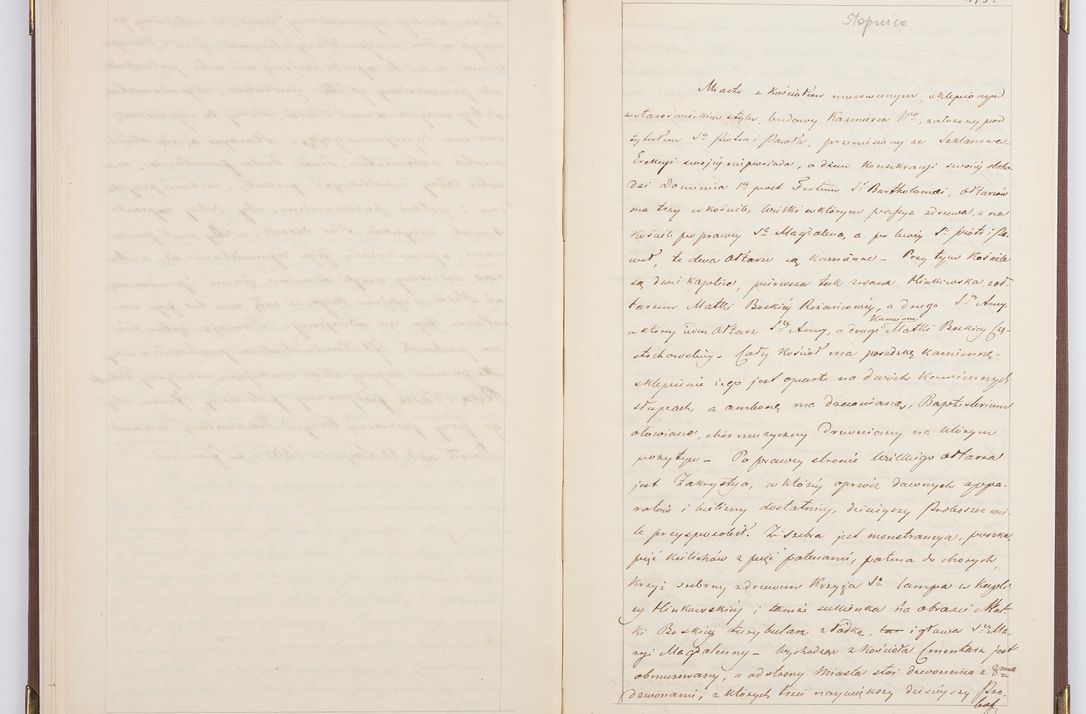 Stopnica
Miasto z kościołem murowanym, sklepionym
w starożwieckim stylu, budowy Kazimierza Wgo, założony pod
tytułem So Piotra i Pawła, przeniesiony ze Szklanowa
Erekcyi swojéj nieposiada, a dzień Konsekracyi swojéj obcho-
dzi Dominica 1a post Festum Si Bartholomei, Ołtarzów
ma trzy w kościele, Wielki w którym passya zdrzewa, a na
Kościele po prawey So Magdalena, a po lewéy So Piotr i Pa-
weł, te dwa Ołtarze są kamienne – Przy tym Kościele
są dwie kaplice, pierwsza tak zwana Hinkowska z oł-
tarzem Matki Boskiéy Różańcowéy, a druga Séy Anny
w któréy ieden Ołtarz Séy Anny, a drugi Kamienny Matki Boskiéy Czę-
stochowskiéy – Cały Kościół ma posadzkę kamienną
sklepienie iego jest oparte na dwóch Kamiennych
słupach, a ambonę ma drewnianą, Baptisterium
ołowiane, chór muzyczny drewniany na którym
pozytyw – Po prawey stronie Wielkiego ołtarza
jest Zakrystya, w któréy oprócz dawnych appa-
ratów i bielizny dostatniéy, dzisieyszy Proboszcz wie-
le przysposobił. Ze srebra jest monstrancya, puszka,
pięć kielichów z pięć patenami, patena do chorych,
Krzyż srebrny zdrzewem Krzyża So lampa w kapli-
cy Hinkowskiéy i tamże sukienka na obrazie Mat-
ki Boskiéy turybularz z łódką, i głowa Séy Ma-
ryi Magdaleny – Wychodząc z Kościoła Cmentarz jest
obmurowany, a od strony Miasta stoi dzwonnica z 3ma
dzwonami, z których trzeci naywiększy dzisieyszy Pro-